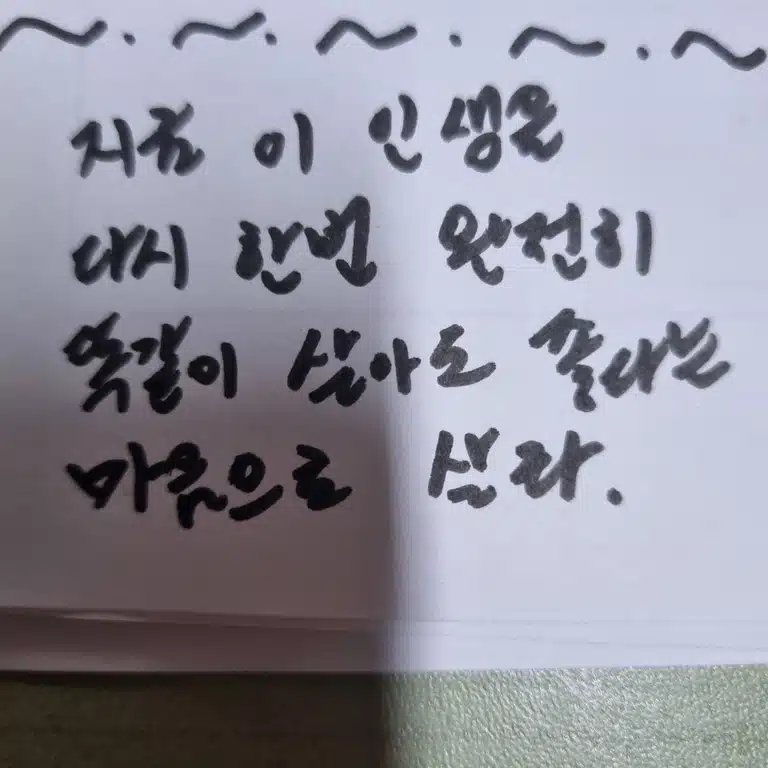 지금 이 인생을
다시 한번 완전히
똑같이 살아도 좋다는
마음으로 살라.